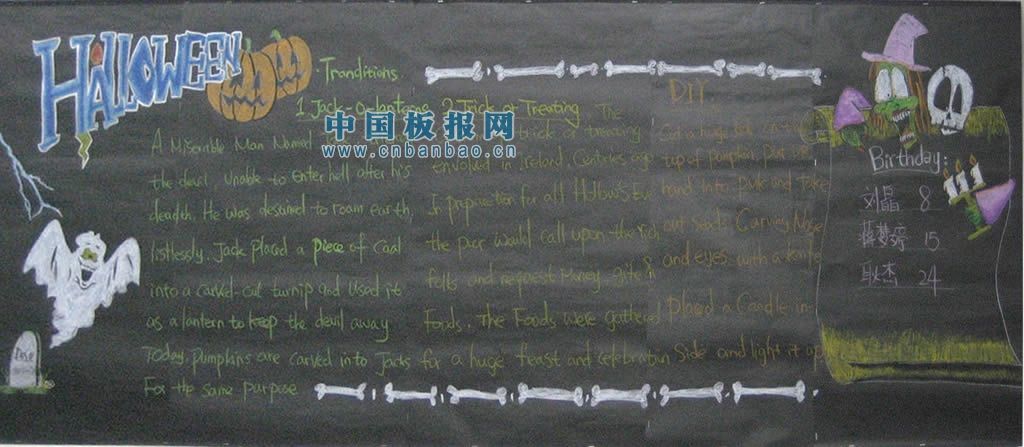 HALLOWEEN
Tranditions
1. Jack-o-lanterns 2. Trick or Treating
A Miserable Man Named
the devil. Unable to enter hell after his
deadth. He was destined to roam earth.
listlessly. Jack placed a piece of Coal
into a carved-out turnip and used it
as a lantern to keep the devil away
Today, pumpkins are carved into Jacks
For the same purpose
The
trick or treating
envolved in Ireland. Centuries ago
In preparation for all Hollows Eve
the poor would call upon the rich
folks and request Money gifts &
Foods. The Foods were gathered
for a huge feast and celebration
DIY.
Cut a huge
top of pumpkin. Put
hand into and take
out seeds Carving Nose
and eyes with a knife
placed a Candle in-
side and light it up
中国板报网
www.cnbanbao.cn
Birthday:
刘晶 8
梦婷 15
耿杰 24